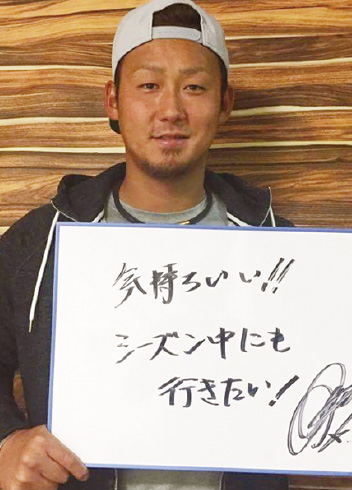 気持ちいい!!
シーズン中にも
行きたい!